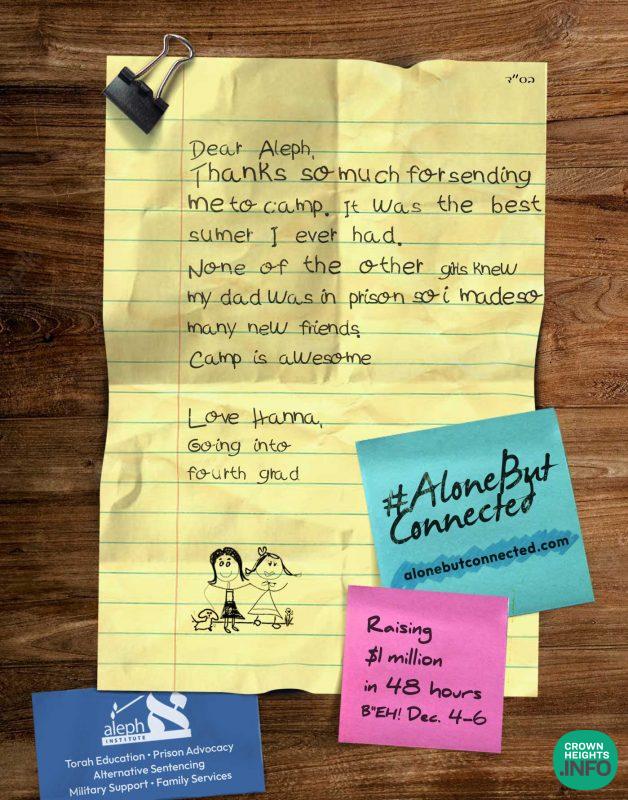 בס"ד
Dear Aleph,
Thanks so much for sending
me to camp. It was the best
sumer I ever had.
None of the other girls knew
my dad was in prison so i made so
many new friends.
Camp is awesome
Love Hanna,
Going into
fourth grad
#AloneBut
Connected
alonebutconnected.com
Raising
$1 million
in 48 hours
B"EH! Dec. 4-6
א
aleph
INSTITUTE
Torah Education • Prison Advocacy
Alternative Sentencing
Military Support • Family Services
CROWN
HEIGHTS
.INFO